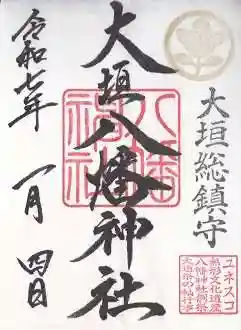 大垣総鎮守
大垣八幡神社
八幡神社
令和七年
一月
四日
ユネスコ
無形文化遺産
八幡神社例祭
大垣祭の軕行事